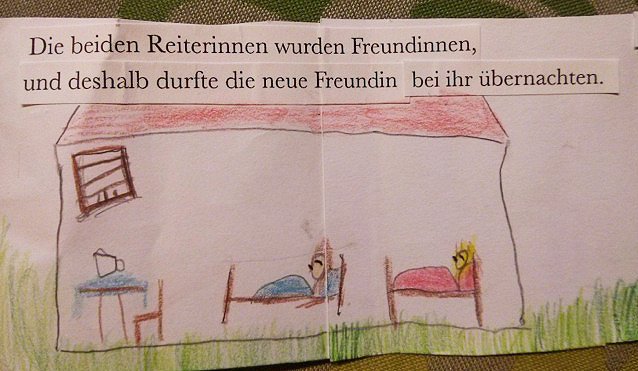 Die beiden Reiterinnen wurden Freundinnen,
und deshalb durfte die neue Freundin bei ihr übernachten.